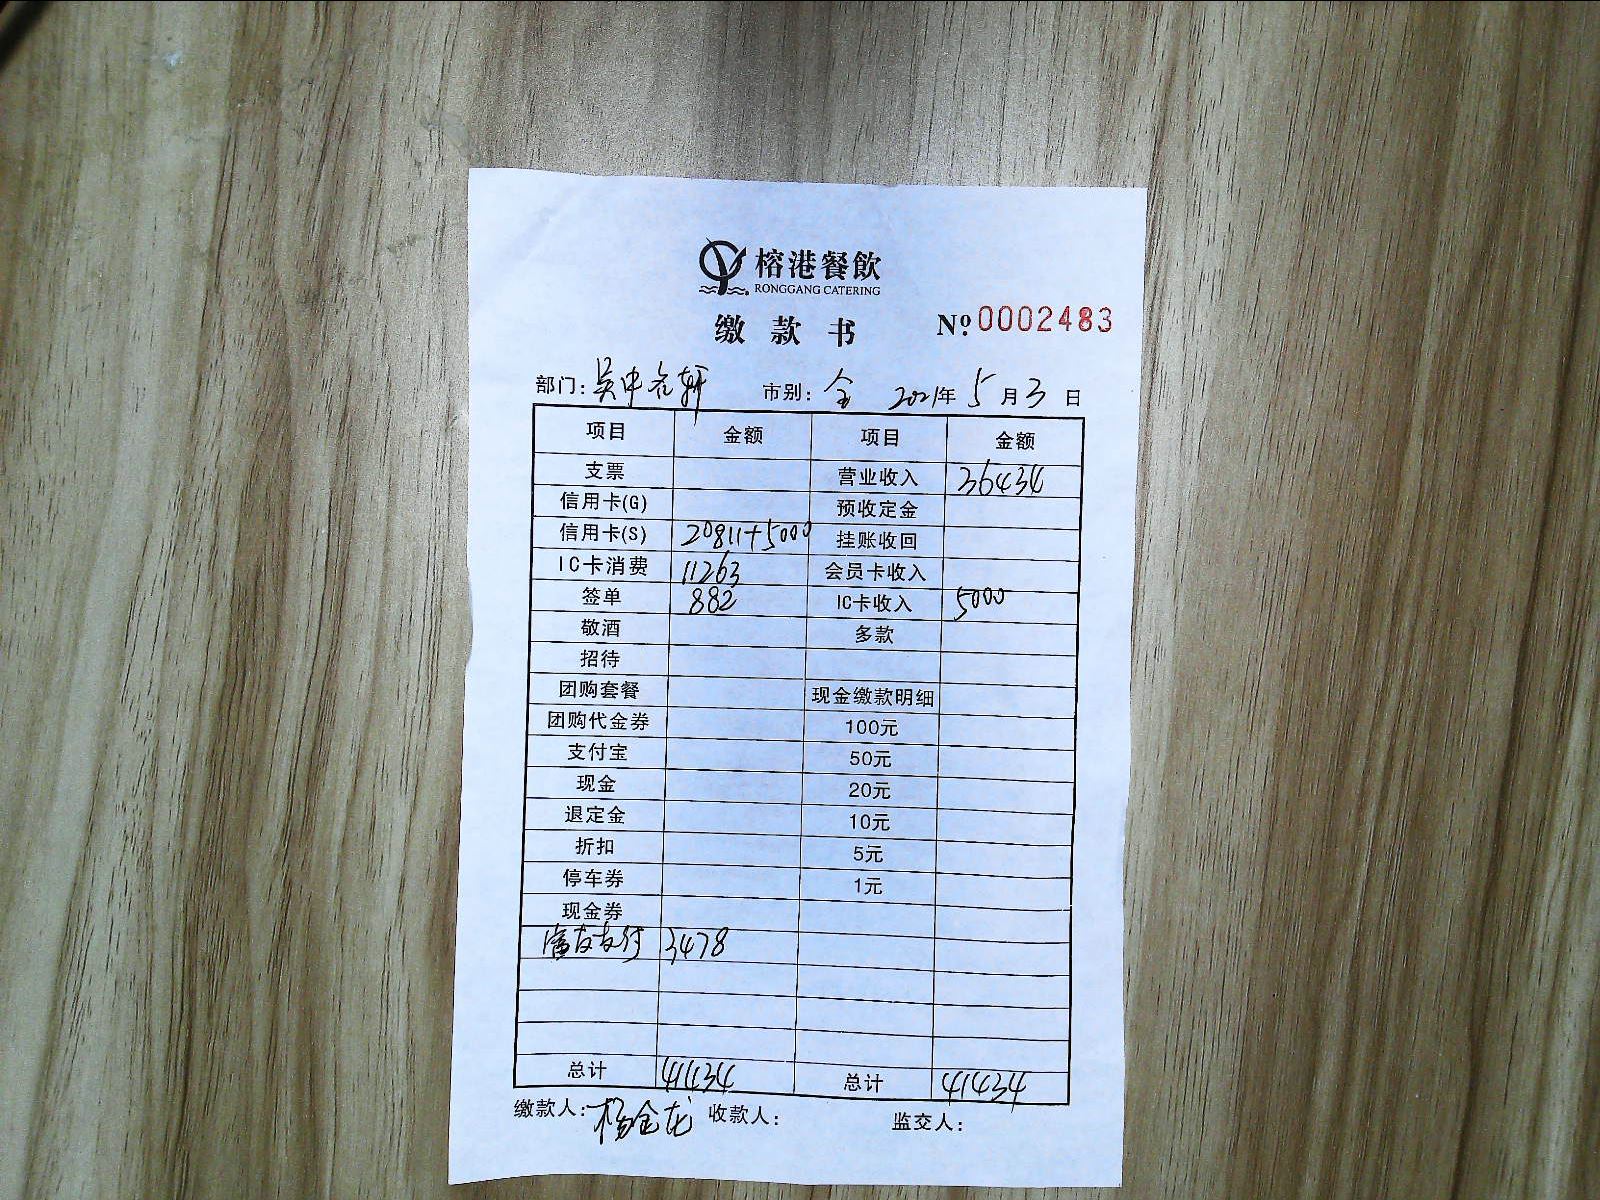 榕港餐飲
RONGGANG CATERING
缴款书 Nº 0002483
部门: 吴中名轩 市别: 全 2021年 5月3日
项目 金额 项目 金额
支票 营业收入 36434
信用卡(G) 预收定金
信用卡(S) 20811+5000 挂账收回
IC卡消费 11263 会员卡收入
签单 882 IC卡收入 5000
敬酒 多款
招待
团购套餐 现金缴款明细
团购代金券 100元
支付宝 50元
现金 20元
退定金 10元
折扣 5元
停车券 1元
现金券
富友支付 3478
总计 41434 总计 41434
缴款人: 杨金龙 收款人: 监交人: